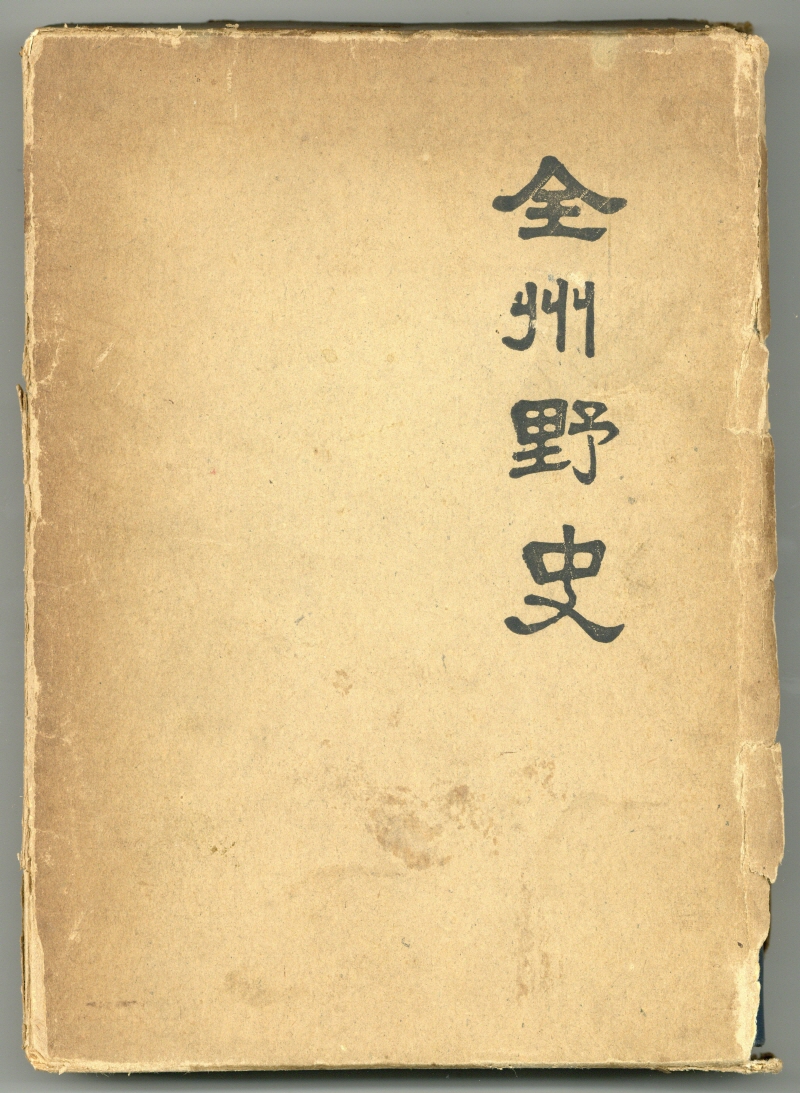 全州野史